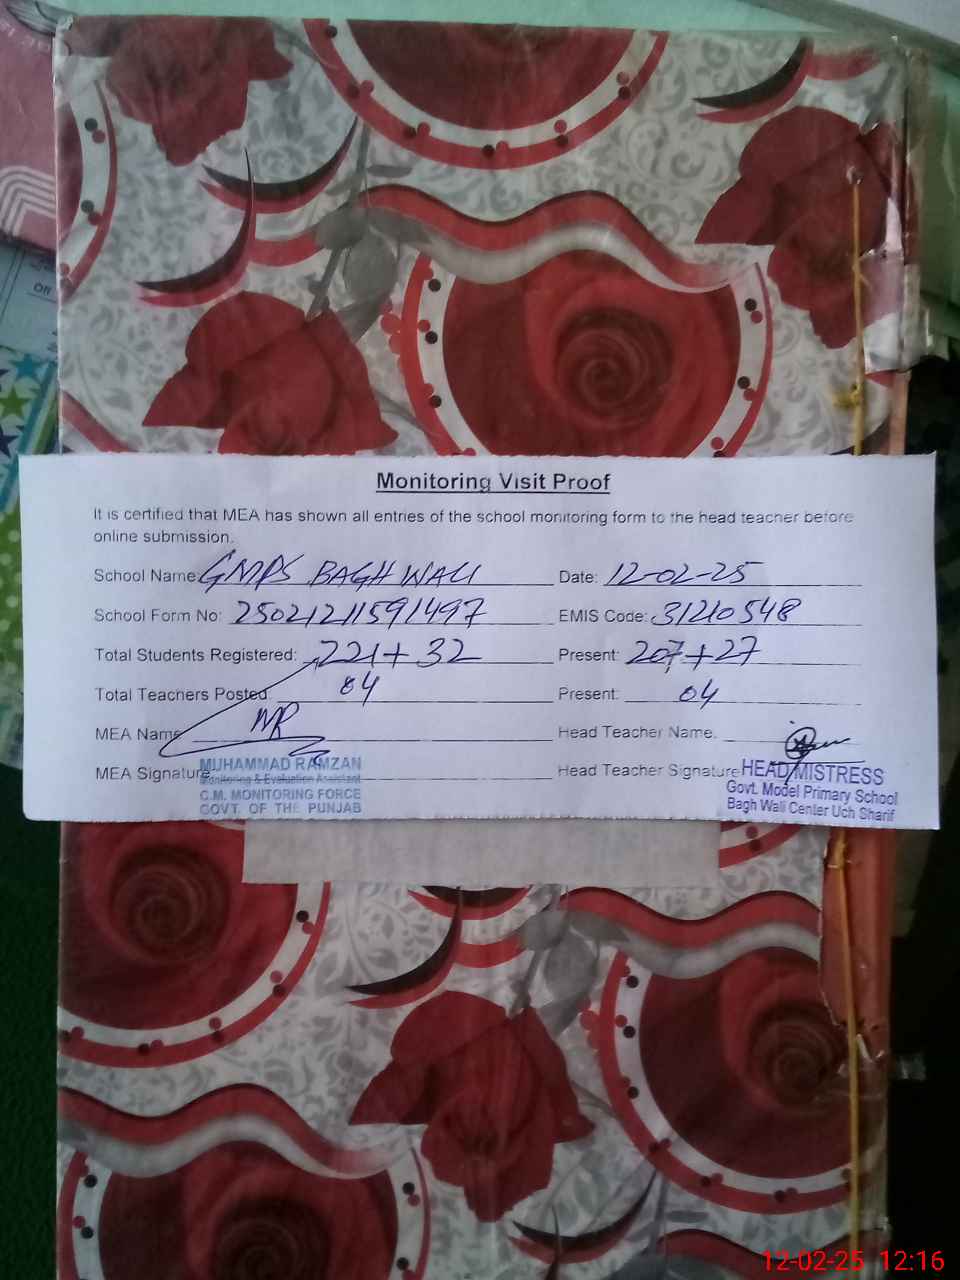 Off
Monitoring Visit Proof
It is certified that MEA has shown all entries of the school monitoring form to the head teacher before
online submission.
School Name: GMPS BAGH WALI Date: 12-02-25
School Form No: 25021211591497 EMIS Code: 31210548
Total Students Registered: 221+32 Present: 207+27
Total Teachers Posted: 04 Present: 04
MEA Name MR Head Teacher Name.
MEA Signature Head Teacher Signature
MUHAMMAD RAMZAN
Monitoring & Evaluation Assistant
C.M. MONITORING FORCE
GOVT. OF THE PUNJAB
HEAD MISTRESS
Govt. Model Primary School
Bagh Wali Center Uch Sharif
12-02-25 12:16